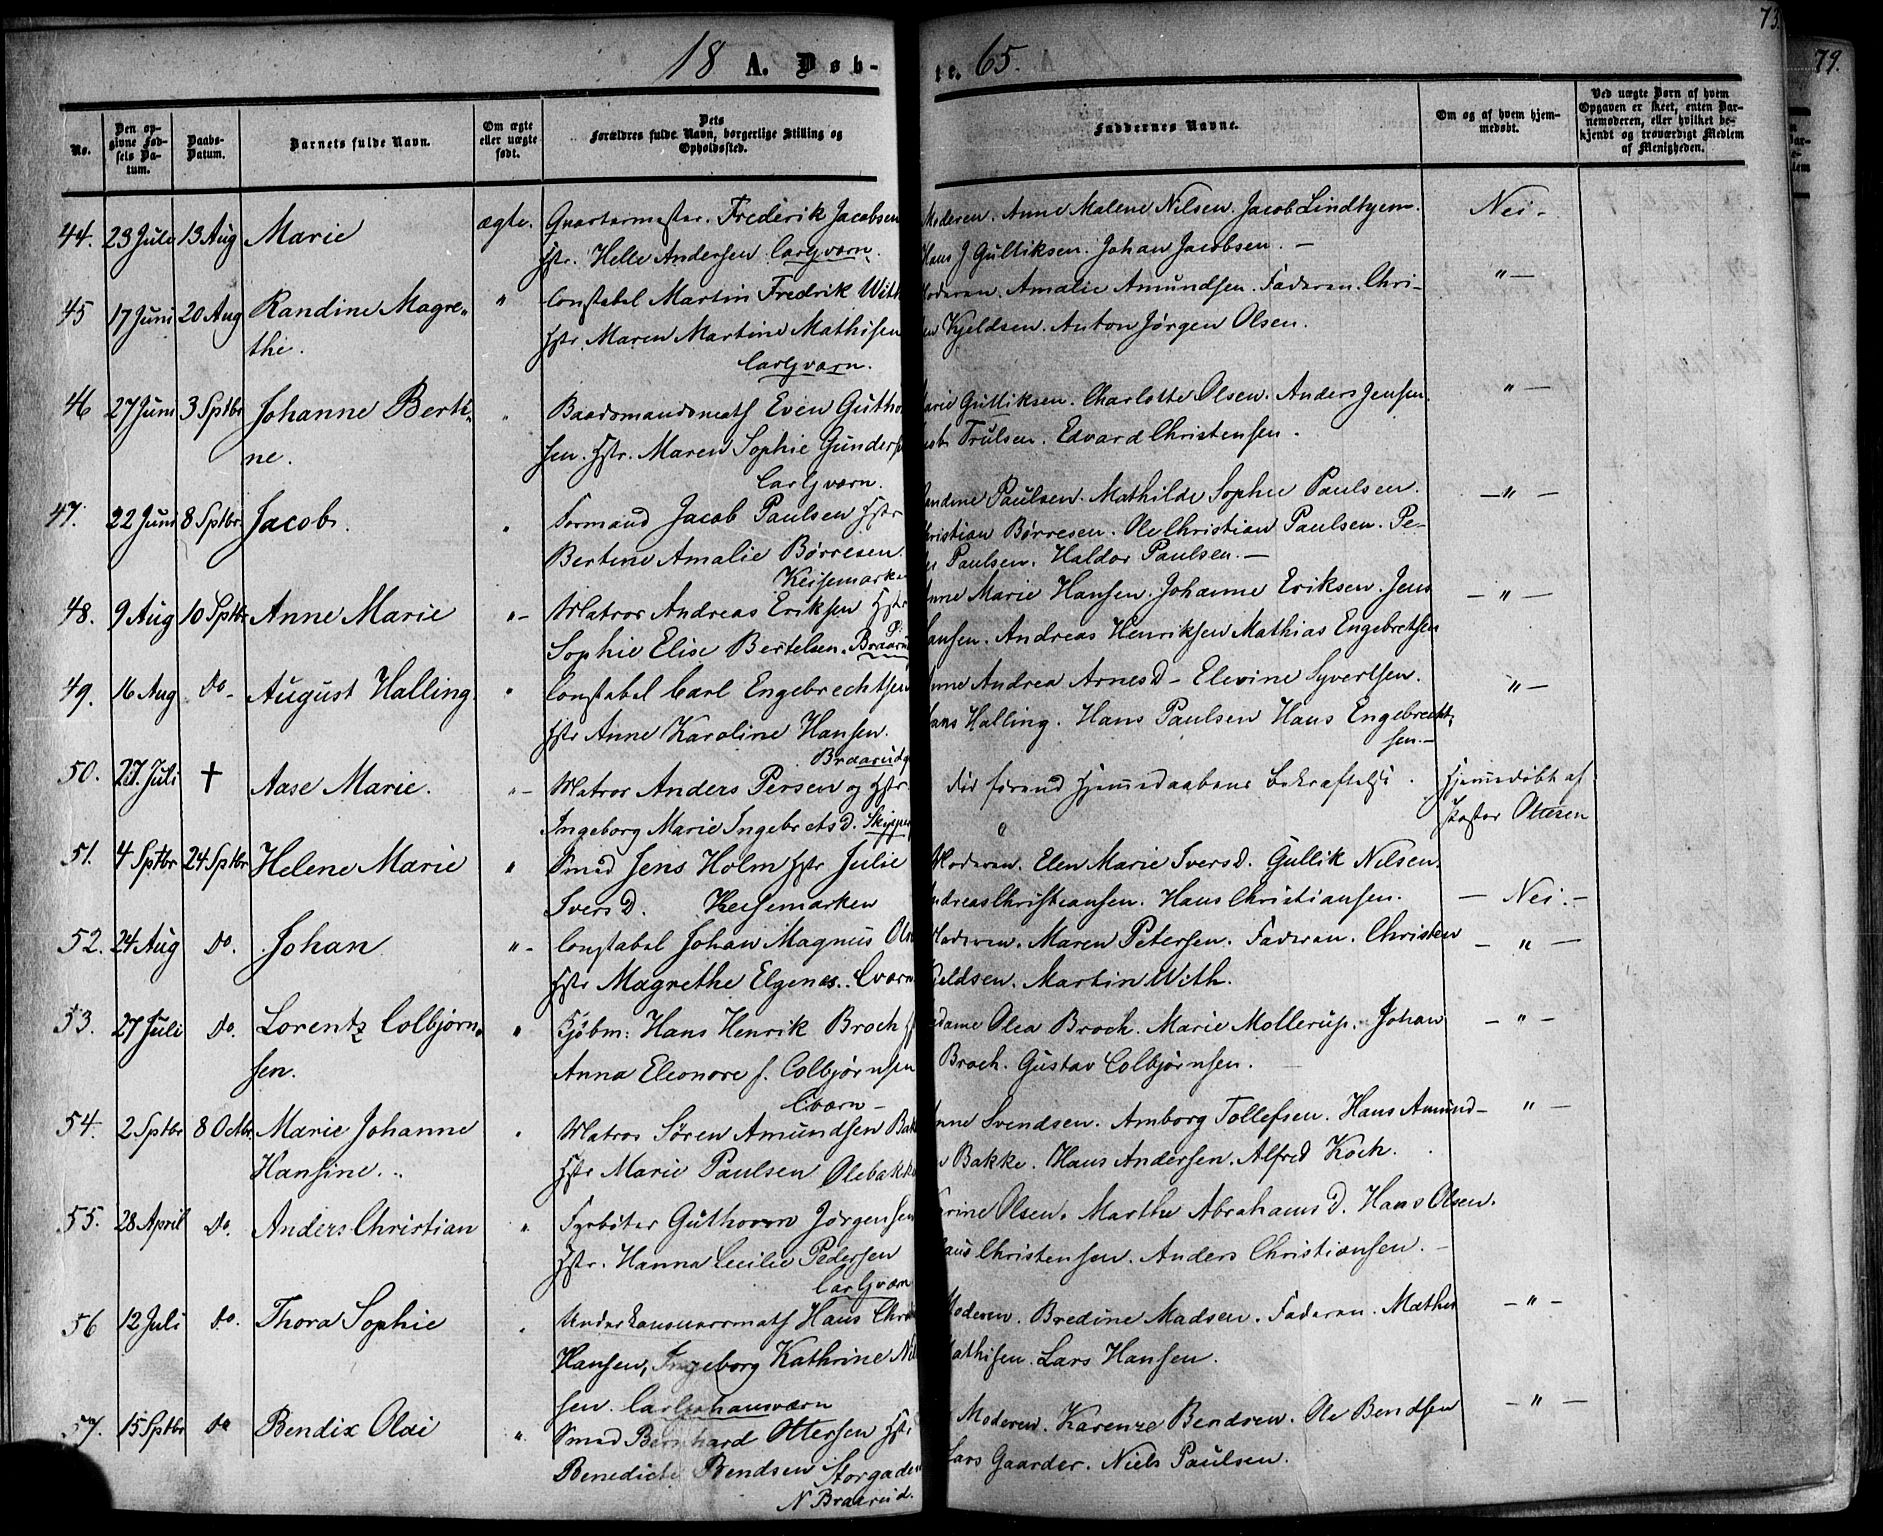 18 A. Døb-
te. 65.
73.
79.
No.
Den op-
givne Fød-
sels Da-
tum.
Daabs-
Datum.
Barnets fulde Navn.
Om ægte
eller uægte
født.
Dets
Forældres fulde Navn, borgerlige Stilling og
Opholdssted.
Faddernes Navne.
Om og af hvem hjem-
medøbt.
Ved uægte Børn af hvem
Opgaven er skeet, enten Bar-
nemoderen, eller hvilket be-
kjendt og troværdigt Medlem
af Menigheden.
44. 23 Juli 13 Aug Marie ægte. Quartermester. Frederik Jacobsen Moderen. Anne Malene Nilsen. Jacob Lindhjem. Nei-
Hstr. Helle Andersen Carljværn. Hans J Gulliksen. Johan Jacobsen. —
45 17 Juni 20 Aug Randine Magre- " Constabel Martin Fredrik With Moderen. Amalie Amundsen. Faderen. Chri- "—
the. Hstr Maren Martine Mathisen Kjeldsen. Anton Jørgen Olsen.
Carljværn.
46 27 Juni 3 Sptbr Johanne Berti- " Baadsmandsmath Even Guthor Marie Gulliksen. Charlotte Olsen. Anders Jensen. "—
ne. sen. Hstr. Maren Sophie Gunders Trulsen. Edvard Christensen.
Carljværn.
47. 22 Juni 8 Sptbr. Jacob. " Formand Jacob Paulsen Hstr Paulsen. Mathilde Sophie Paulsen. —"—
Bertine Amalie Børresen. Christian Børresen. Ole Christian Paulsen. Pe-
Keisemarken Paulsen. Haldor Paulsen. —
48. 9 Aug 10 Sptbr Anne Marie "- Matros Andreas Eriksen Hstr Anne Marie Hansen. Johanne Eriksen. Jens —"—
Sophie Elise Bertelsen. Braarud Hansen. Andreas Henriksen Mathias Engebretsen
49. 16 Aug do- August Halling. " Constabel Carl Engebrechtsen Anne Andrea Arnesd- Elevine Syvertsen. "—
Hstr Anne Karoline Hansen. Hans Halling. Hans Paulsen Hans Engebrecht-
Braarudg sen.—
50. 27. Juli † Aase Marie. "- Matros Anders Persen og Hstr død førend Hjemmedaabens Bekræftelse. Hjemmedøbt af
Ingeborg Marie Ingebretsd. Pastor Ottesen
51. 4 Sptbr 24 Sptbr Helene Marie " Smed Jens Holm Hstr Julie Moderen. Elen Marie Iversd. Gullik Nilsen.
Iversd. Keisemarken Andreas Christiansen. Hans Christiansen. — Nei. —
52. 24 Aug do. Johan "- Constabel Johan Magnus Ols Moderen. Maren Petersen. Faderen. Christen —"—
Hstr Magrethe Elgenæs. Cværn Kjeldsen. Martin With.
53. 27 Juli do. Lorentz Colbjørn- " Kjøbm: Hans Henrik Broch Madame Olea Broch. Marie Mollerup. Johan —"—
sen. Anna Eleonore f. Colbjørnsen Broch. Gustav Colbjørnsen.
Cværn—
54. 2 Sptbr 8 Octbr. Marie Johanne " Matros Søren Amundsen Bak Anne Svendsen. Amborg Tollefsen. Hans Amund- "—
Hansine. Hstr Marie Paulsen Olebakke Bakke. Hans Andersen. Alfred Koch.
55. 28 April do. Anders Christian " Fyrbøter Guthorm Jørgensen Olsen. Marthe Abrahamsd. Hans Olsen.
Hstr. Hanna Cecilie Pedersen Christensen. Anders Christiansen. —
Carljværn
56 12 Juli do. Thora Sophie " Hans Chr Moderen. Bredine Madsen. Faderen. Mathis —"—
Hansen, Ingeborg Kathrine Nil Mathisen. Lars Hansen.
sen. Carljohansværn
57. 15 Sptbr do Bendix Olai " Smed Bernhard Ottersen Hstr Moderen. Karenze Bendsen. Ole Bendsen —"—
Benedicte Bendsen Storgaden Lars Gaarder. Niels Paulsen.
N Braarud.